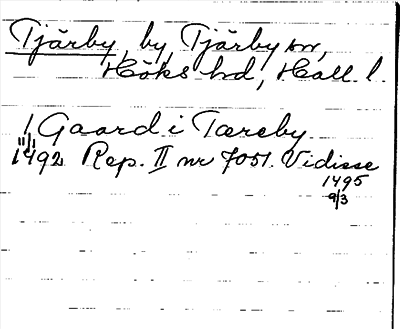 Tjärby, by, Tjärby sn,
Höks hd, Hall. l.
1 Gaard i Tæreby.
11/1 1492 Rep. II nr 7051. Vidisse
1495
9/3